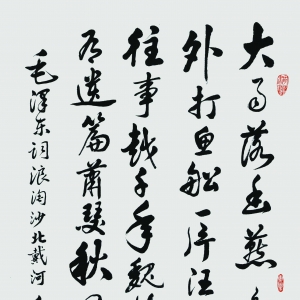 大雨落幽燕
外打鱼船一片汪
往事越千年魏
有遗篇萧瑟秋风
毛泽东词浪淘沙北戴河